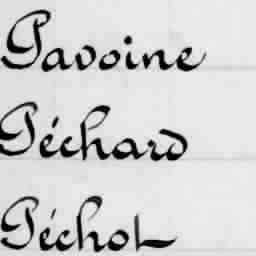 Pavoine
Péchard
Péchot